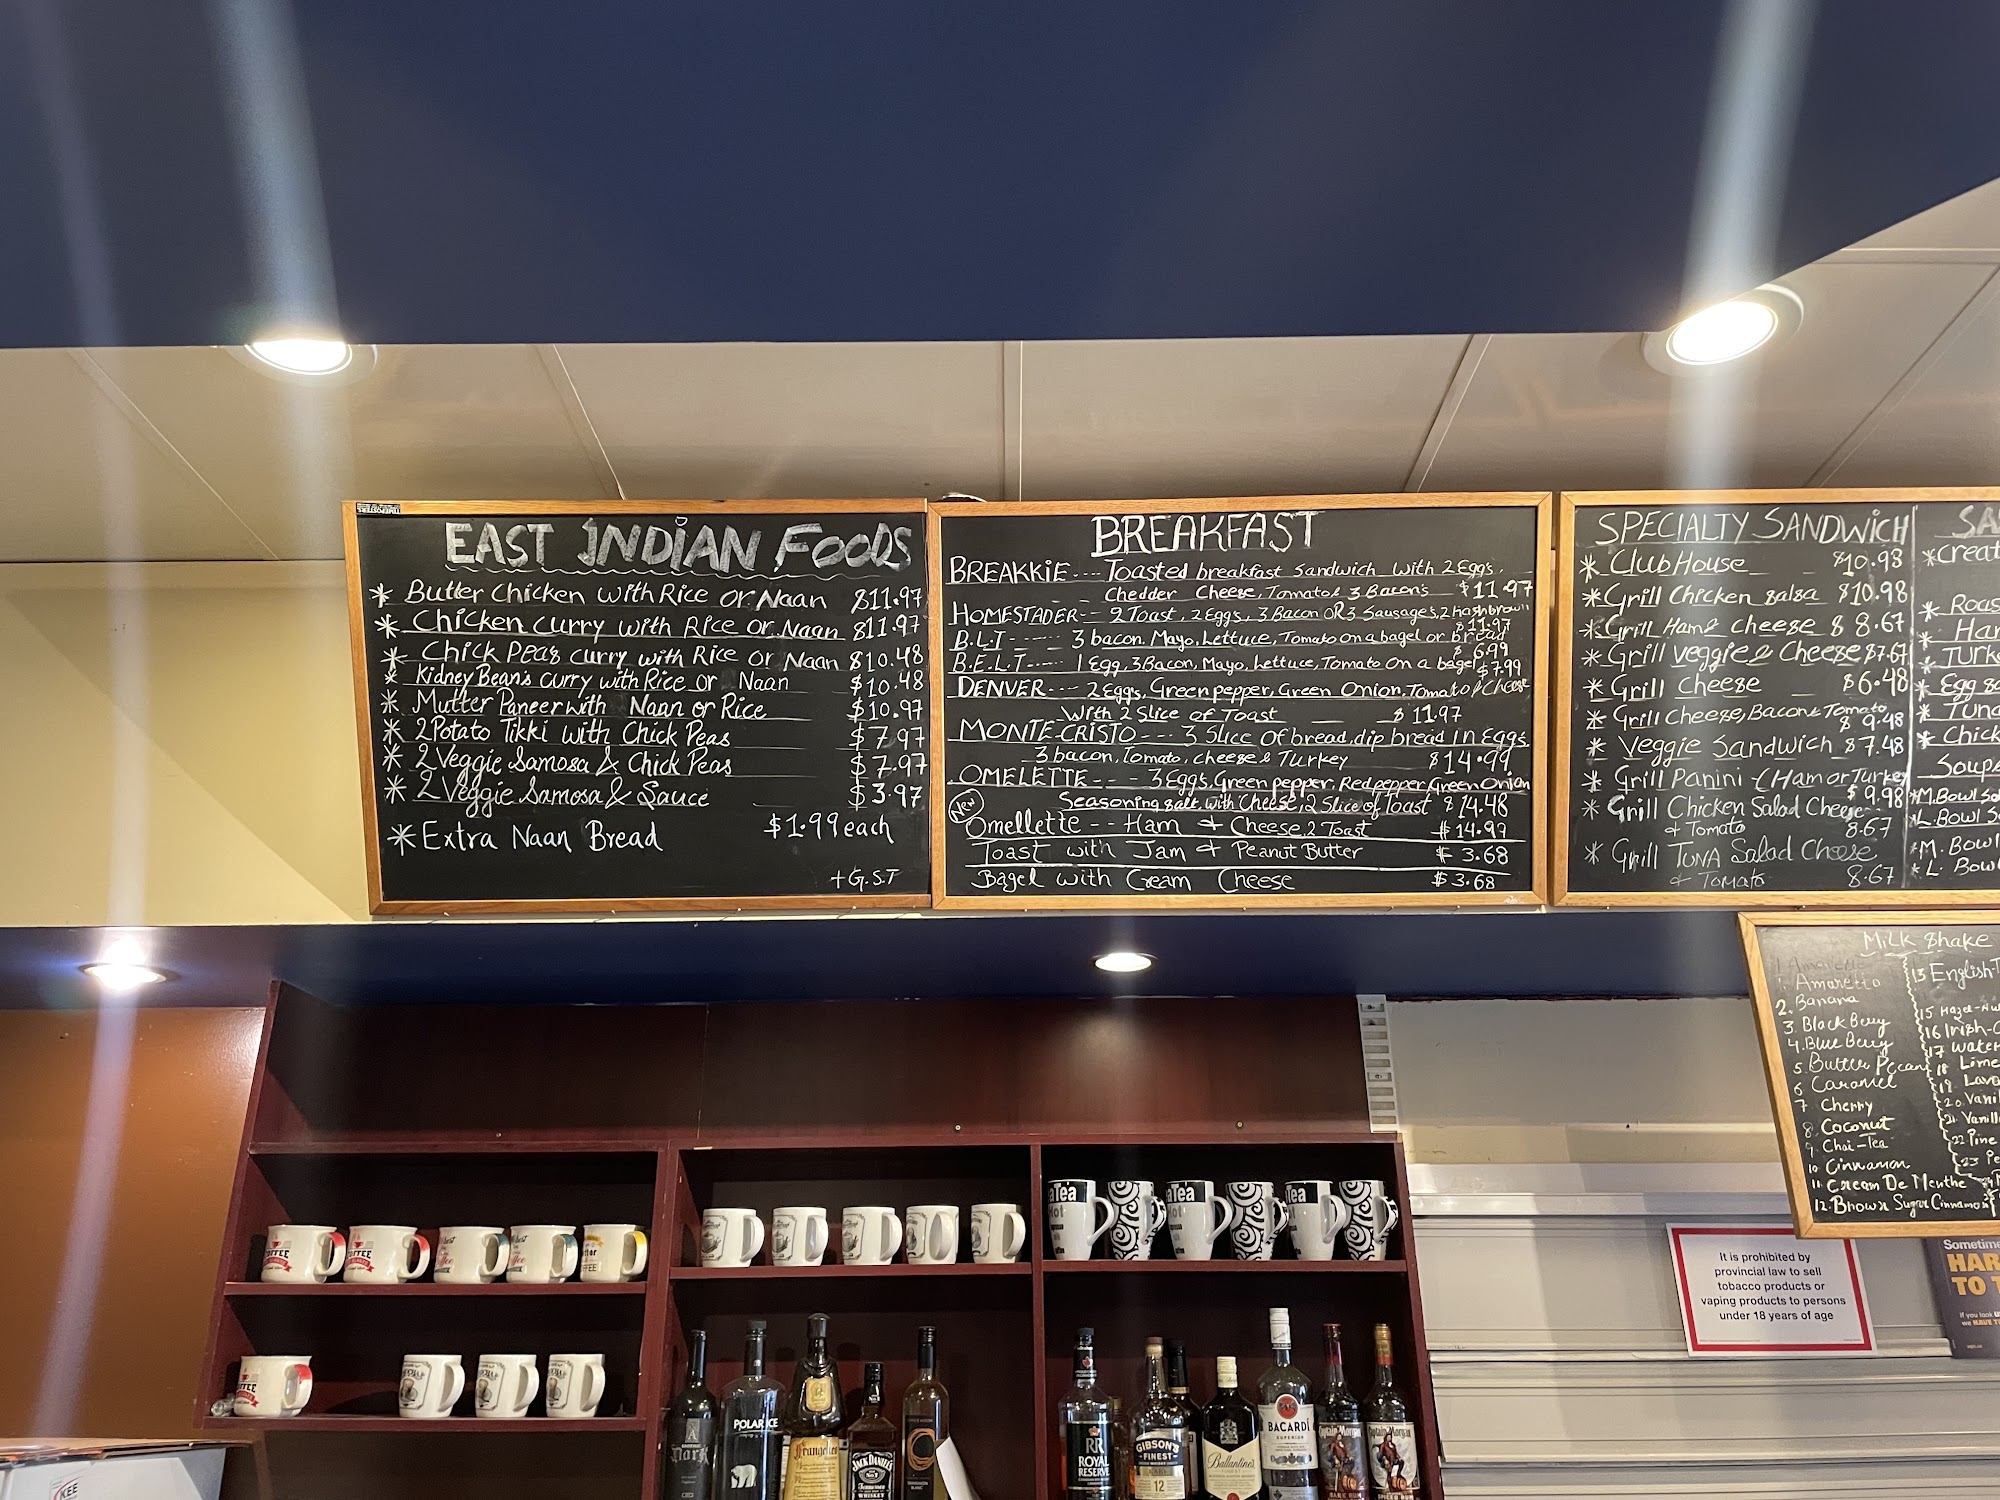 EAST INDIAN FOODS
* Butter Chicken with Rice or Naan $11.97
* Chicken curry with Rice or Naan $11.97
* Chick Peas curry with Rice or Naan $10.48
* Kidney Bean's curry with Rice or Naan $10.48
* Mutter Paneer with Naan or Rice $10.97
* 2 Potato Tikki with Chick Peas $7.97
* 2 Veggie Samosa & Chick Peas $7.97
* 2 Veggie Samosa & Sauce $3.97
* Extra Naan Bread $1.99 each
+ G.S.T
BREAKFAST
BREAKKIE --- Toasted breakfast Sandwich with 2 Eggs,
Chedder Cheese, Tomato & 3 Bacon's $11.97
HOMESTADER -- 2 Toast, 2 Eggs, 3 Bacon OR 3 Sausages, 2 hashbrown
$11.97
B.L.T ---- 3 bacon, Mayo, Lettuce, Tomato on a bagel or bread
$6.99
B.E.L.T ---- 1 Egg, 3 Bacon, Mayo, Lettuce, Tomato on a bagel $7.99
DENVER ---- 2 Eggs, Green pepper, Green Onion, Tomato & Cheese
With 2 Slice of Toast $11.97
MONTE-CRISTO --- 3 Slice of bread, dip bread in Eggs
3 bacon, Tomato, cheese & Turkey $14.99
OMELETTE ---- 3 Eggs, Green pepper, Red pepper, Green Onion
Seasoning salt, with Cheese, 2 Slice of Toast $14.48
New
Omellette -- Ham & Cheese, 2 Toast $14.99
Toast with Jam & Peanut Butter $3.68
Bagel with Cream Cheese $3.68
SPECIALTY SANDWICH
* Club House $10.98
* Grill Chicken salsa $10.98
* Grill Ham & cheese $8.67
* Grill veggie & Cheese $7.67
* Grill Cheese $6.48
* Grill Cheese, Bacon & Tomato
$9.48
* Veggie Sandwich $7.48
* Grill Panini - (Ham or Turkey
$9.98
* Grill Chicken Salad Cheese
& Tomato 8.67
* Grill TUNA Salad Cheese
& Tomato 8.67
SA
* Creat
* Roas
* Ham
* Turke
* Egg sa
* Tuna
* Chick
Soups
* M. Bowl
* L. Bowl
* M. Bowl
* L. Bowl
Milk Shake
1. Amaretto
2. Banana
3. Black Berry
4. Blue Berry
5. Butter Pecan
6 Caramel
7 Cherry
8. Coconut
9. Chai-Tea
10. Cinnamon
11. Cream De Menthe
12. Brown Sugar Cinnamon
13 English T
15 Hazel-Nu
16 Irish-C
17 Water
18 Lime
19. Lava
20. Vanil
21. Vanilla
22 Pine
23 Pe
It is prohibited by
provincial law to sell
tobacco products or
vaping products to persons
under 18 years of age
Sometime
HAR
TO T
If you look
we HAVE T
COFFEE
COFFEE
aTea
Hot
aTea
aTea
POLAR ICE
Frangelico
JACK DANIEL'S
Tennessee
WHISKEY
RR
ROYAL
RESERVE
GIBSON'S
FINEST
12
Ballantine's
BACARDÍ
SUPERIOR
Captain Morgan
DARK RUM
Captain Morgan
SPICED RUM
KEE